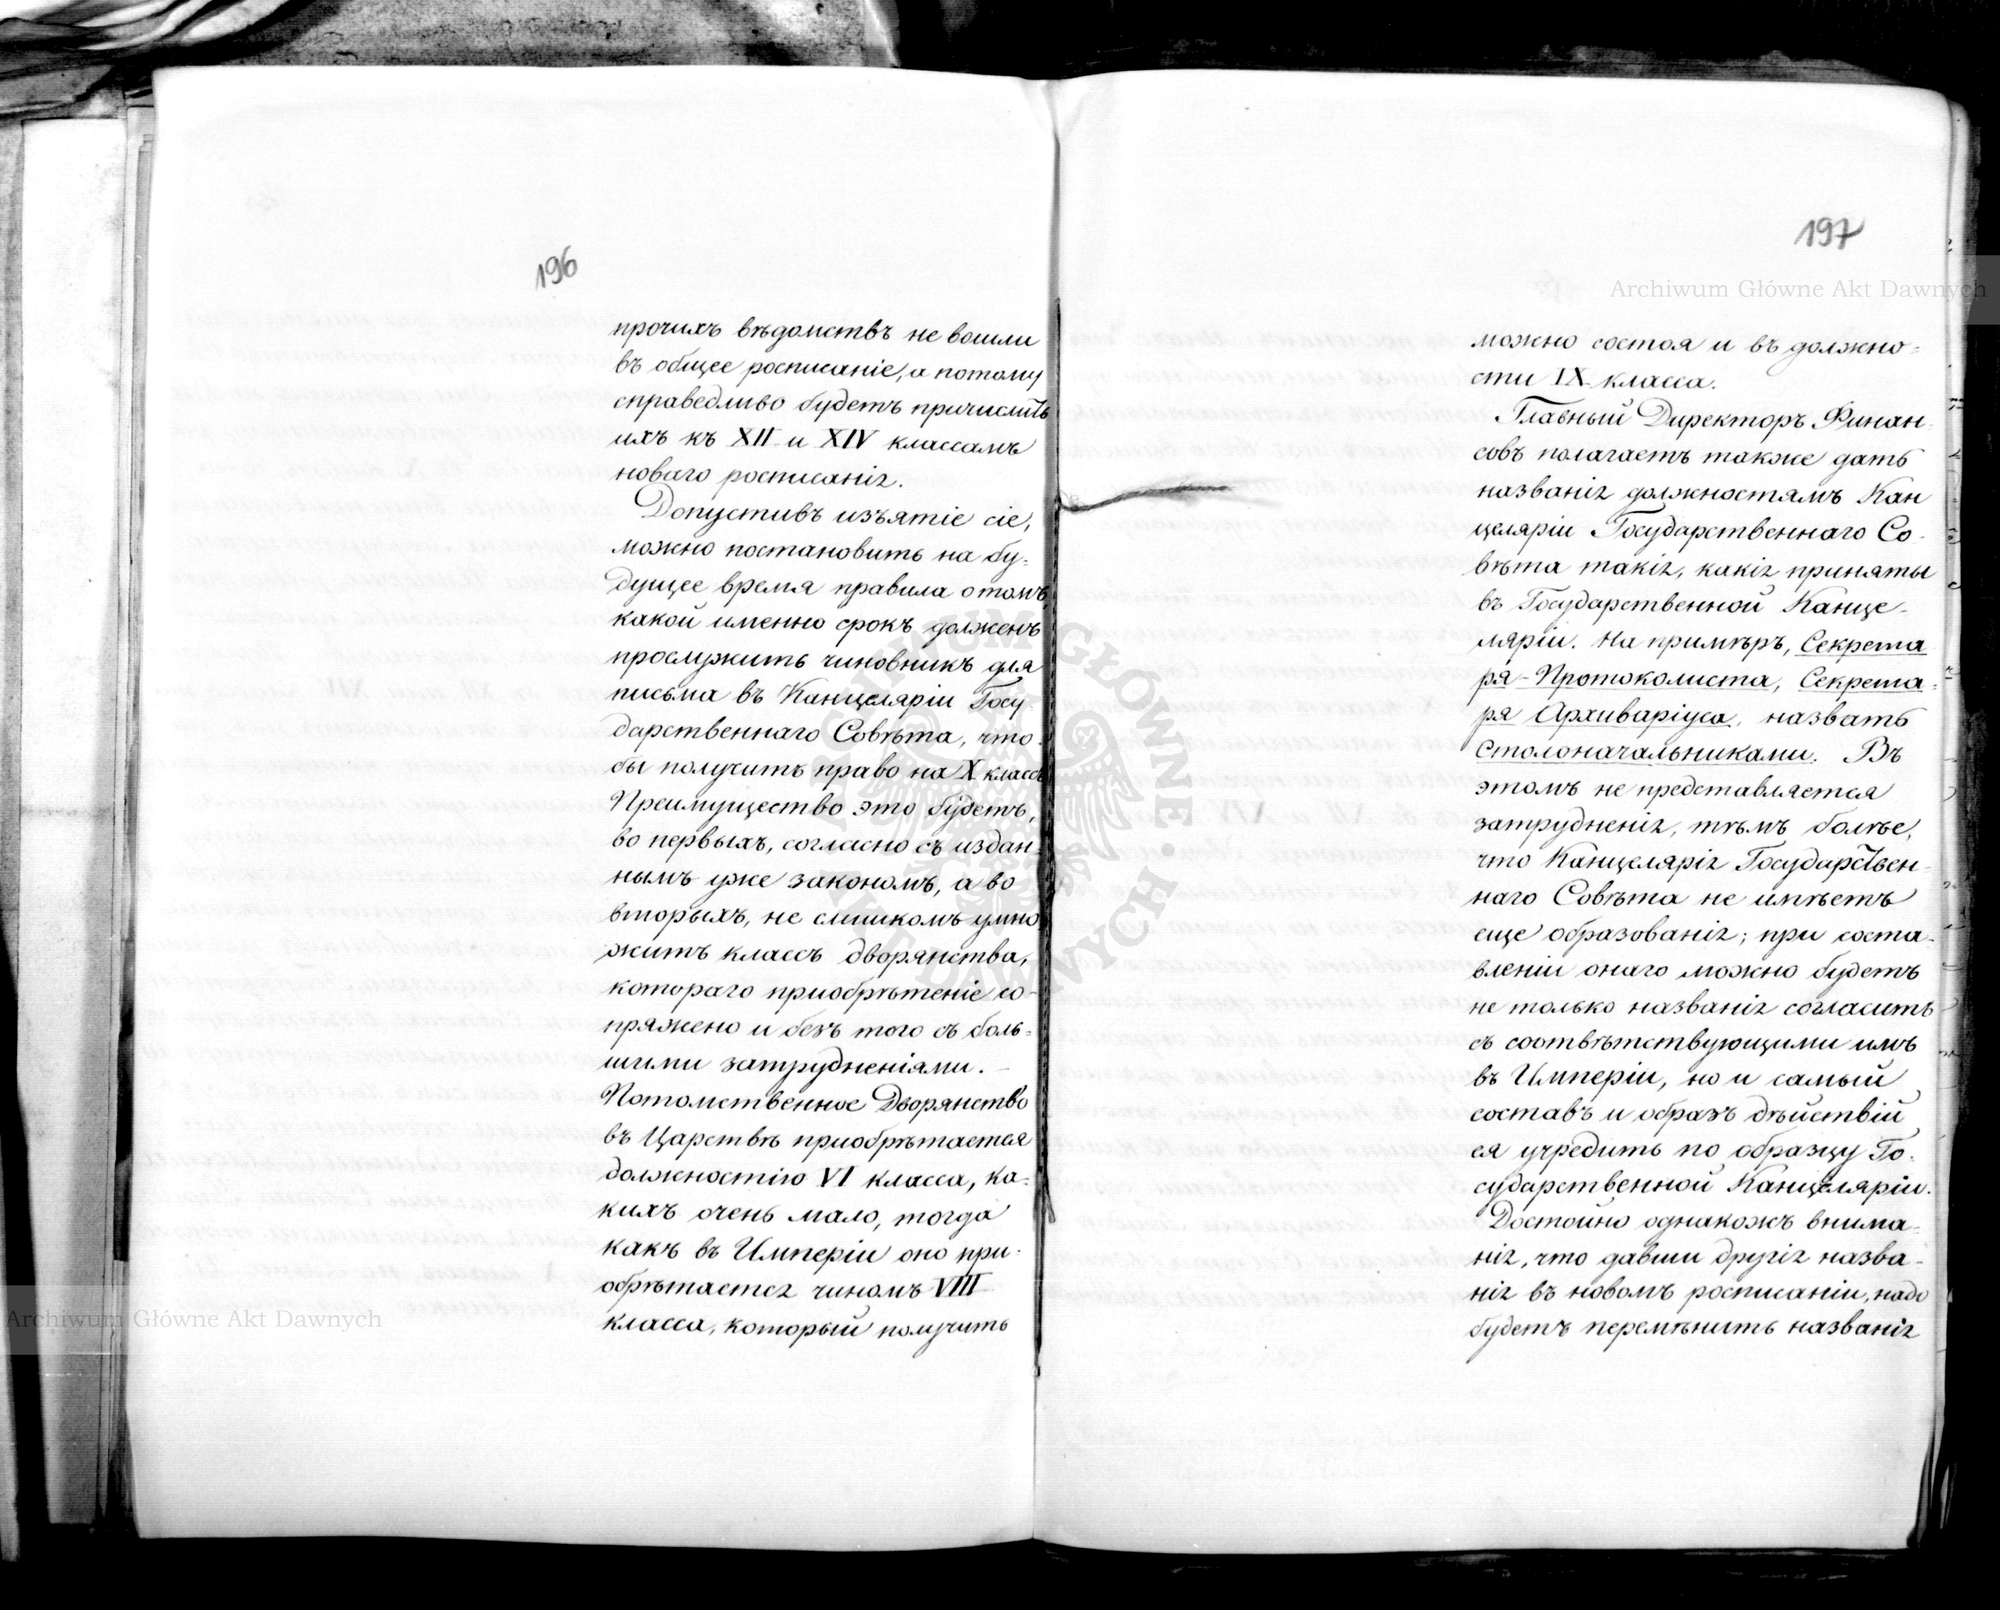 196
прочихъ вѣдомствъ не вошли
въ общее росписаніе, а потому
справедливо будетъ причислить
ихъ къ XII и XIV классамъ
новаго росписанія.
Допустивъ изъятіе сіе,
можно постановить на бу-
дущее время правила о томъ,
какой именно срокъ долженъ
прослужить чиновникъ для
письма въ Канцеляріи Госу-
дарственнаго Совѣта, что-
бы получить право на X классъ
Преимущество это будетъ,
во первыхъ, согласно съ издан-
нымъ уже закономъ, а во
вторыхъ, не слишкомъ умно
житъ классъ дворянства,
котораго приобрѣтеніе со-
пряжено и безъ того съ боль-
шими затрудненіями. —
Потомственное Дворянство
въ Царствѣ приобрѣтается
должностію VI класса, ка-
кихъ очень мало, тогда
какъ въ Имперіи оно при-
обрѣтается чиномъ VIII
класса, который получить
197
можно состоя и въ должно-
сти IX класса.
Главный Директоръ Финан-
совъ полагаетъ также дать
названія должностямъ Кан
целяріи Государственнаго Со-
вѣта такія, какія приняты
въ Государственной Канце-
ляріи. На примѣръ, Секрета
ря-Протоколиста, Секрета-
ря Архиваріуса, назвать
Столоначальниками. Въ
этомъ не представляется
затрудненія, тѣмъ болѣе,
что Канцелярія Государствен-
наго Совѣта не имѣетъ
еще образованія; при соста-
вленіи онаго можно будетъ
не только названія согласить
съ соотвѣтствующими имъ
въ Имперіи, но и самый
составъ и образъ дѣйствій
ея учредить по образцу Го-
сударственной Канцеляріи.
Достойно однакожъ внима-
нія, что давши другія назва-
нія въ новомъ росписаніи, надо
будетъ перемѣнить названія
Archiwum Główne Akt Dawnych
Archiwum Główne Akt Dawnych
ARCHIWUM GŁÓWNE AKT DAWNYCH